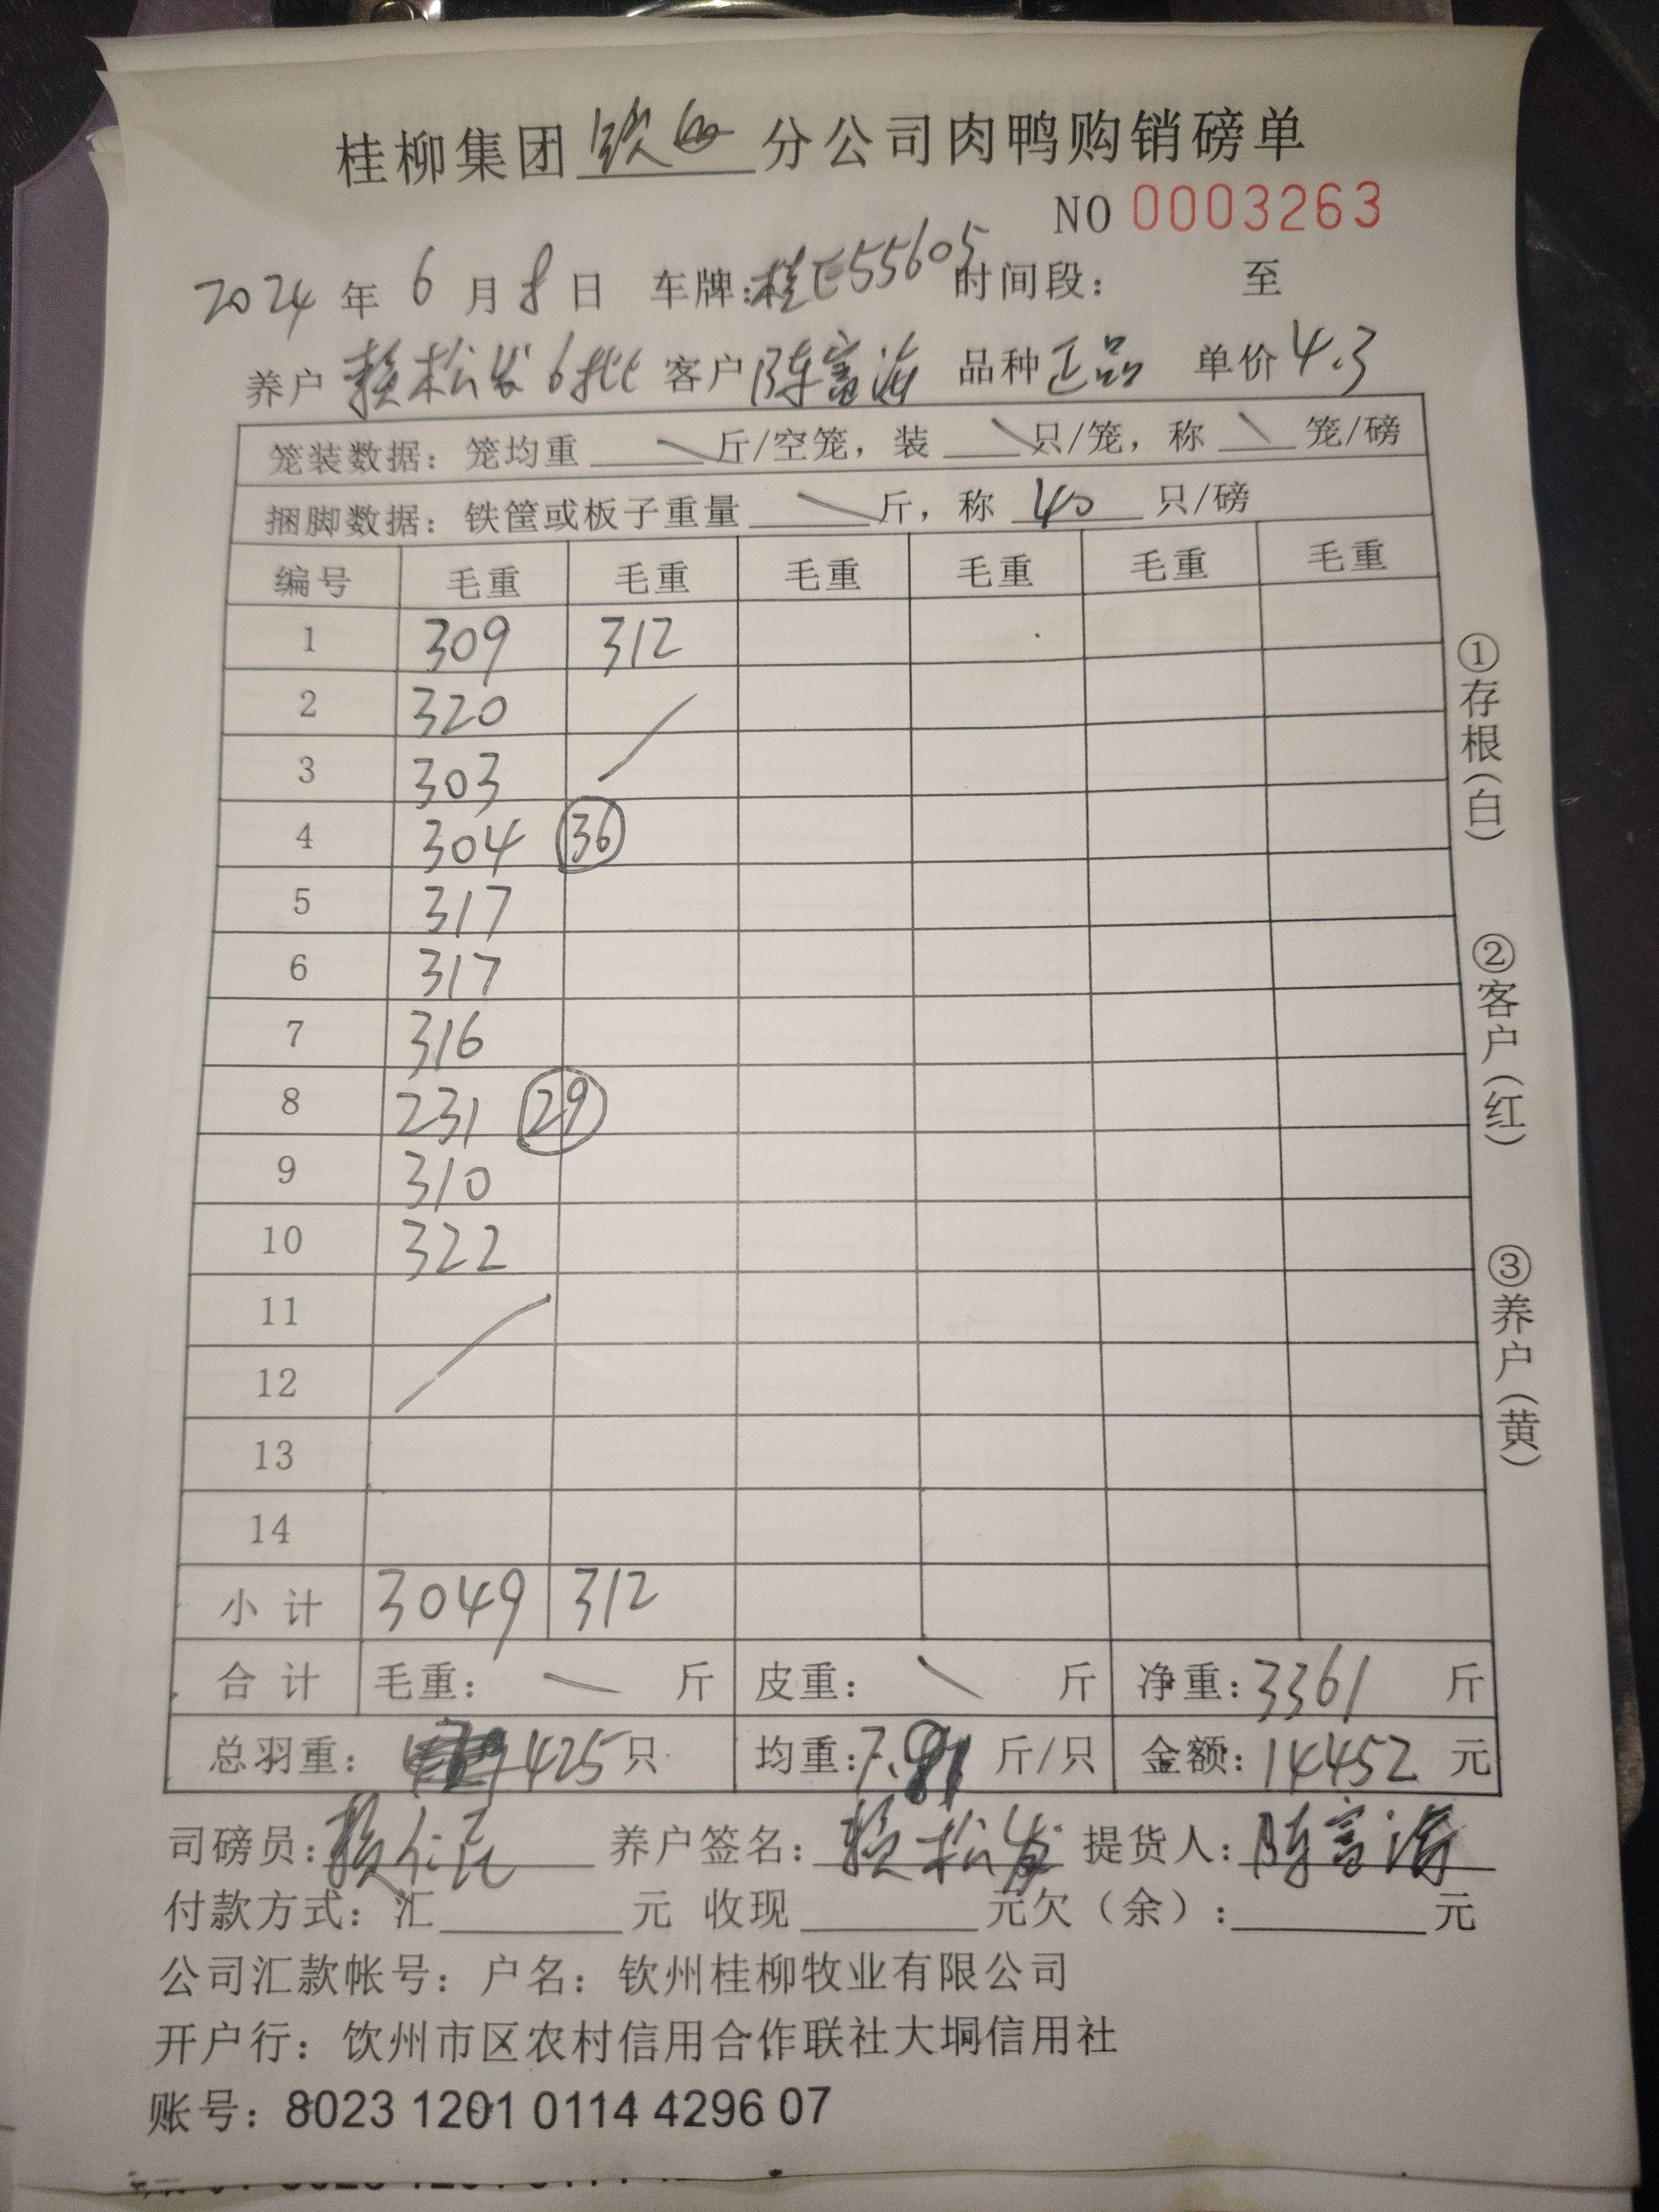 桂柳集团钦西分公司肉鸭购销磅单
NO 0003263
2024年6月8日 车牌:桂E55605 时间段: 至
养户 赖松发6批 客户 陈富海 品种 正品 单价 4.3
笼装数据: 笼均重 \ 斤/空笼, 装 \ 只/笼, 称 \ 笼/磅
捆脚数据: 铁筐或板子重量 \ 斤, 称 40 只/磅
编号 毛重 毛重 毛重 毛重 毛重 毛重
1 309 312
2 320
3 303
4 304 36
5 317
6 317
7 316
8 231 29
9 310
10 322
11
12
13
14
小计 3049 312
合计 毛重: \ 斤 皮重: \ 斤 净重: 3361 斤
总羽重: 425只 均重: 7.91 斤/只 金额: 14452 元
司磅员: 赖 养户签名: 赖松发 提货人: 陈富海
付款方式: 汇 元 收现 元欠(余): 元
公司汇款帐号: 户名: 钦州桂柳牧业有限公司
开户行: 钦州市区农村信用合作联社大垌信用社
账号: 8023 1201 0114 4296 07
①存根(白)
②客户(红)
③养户(黄)